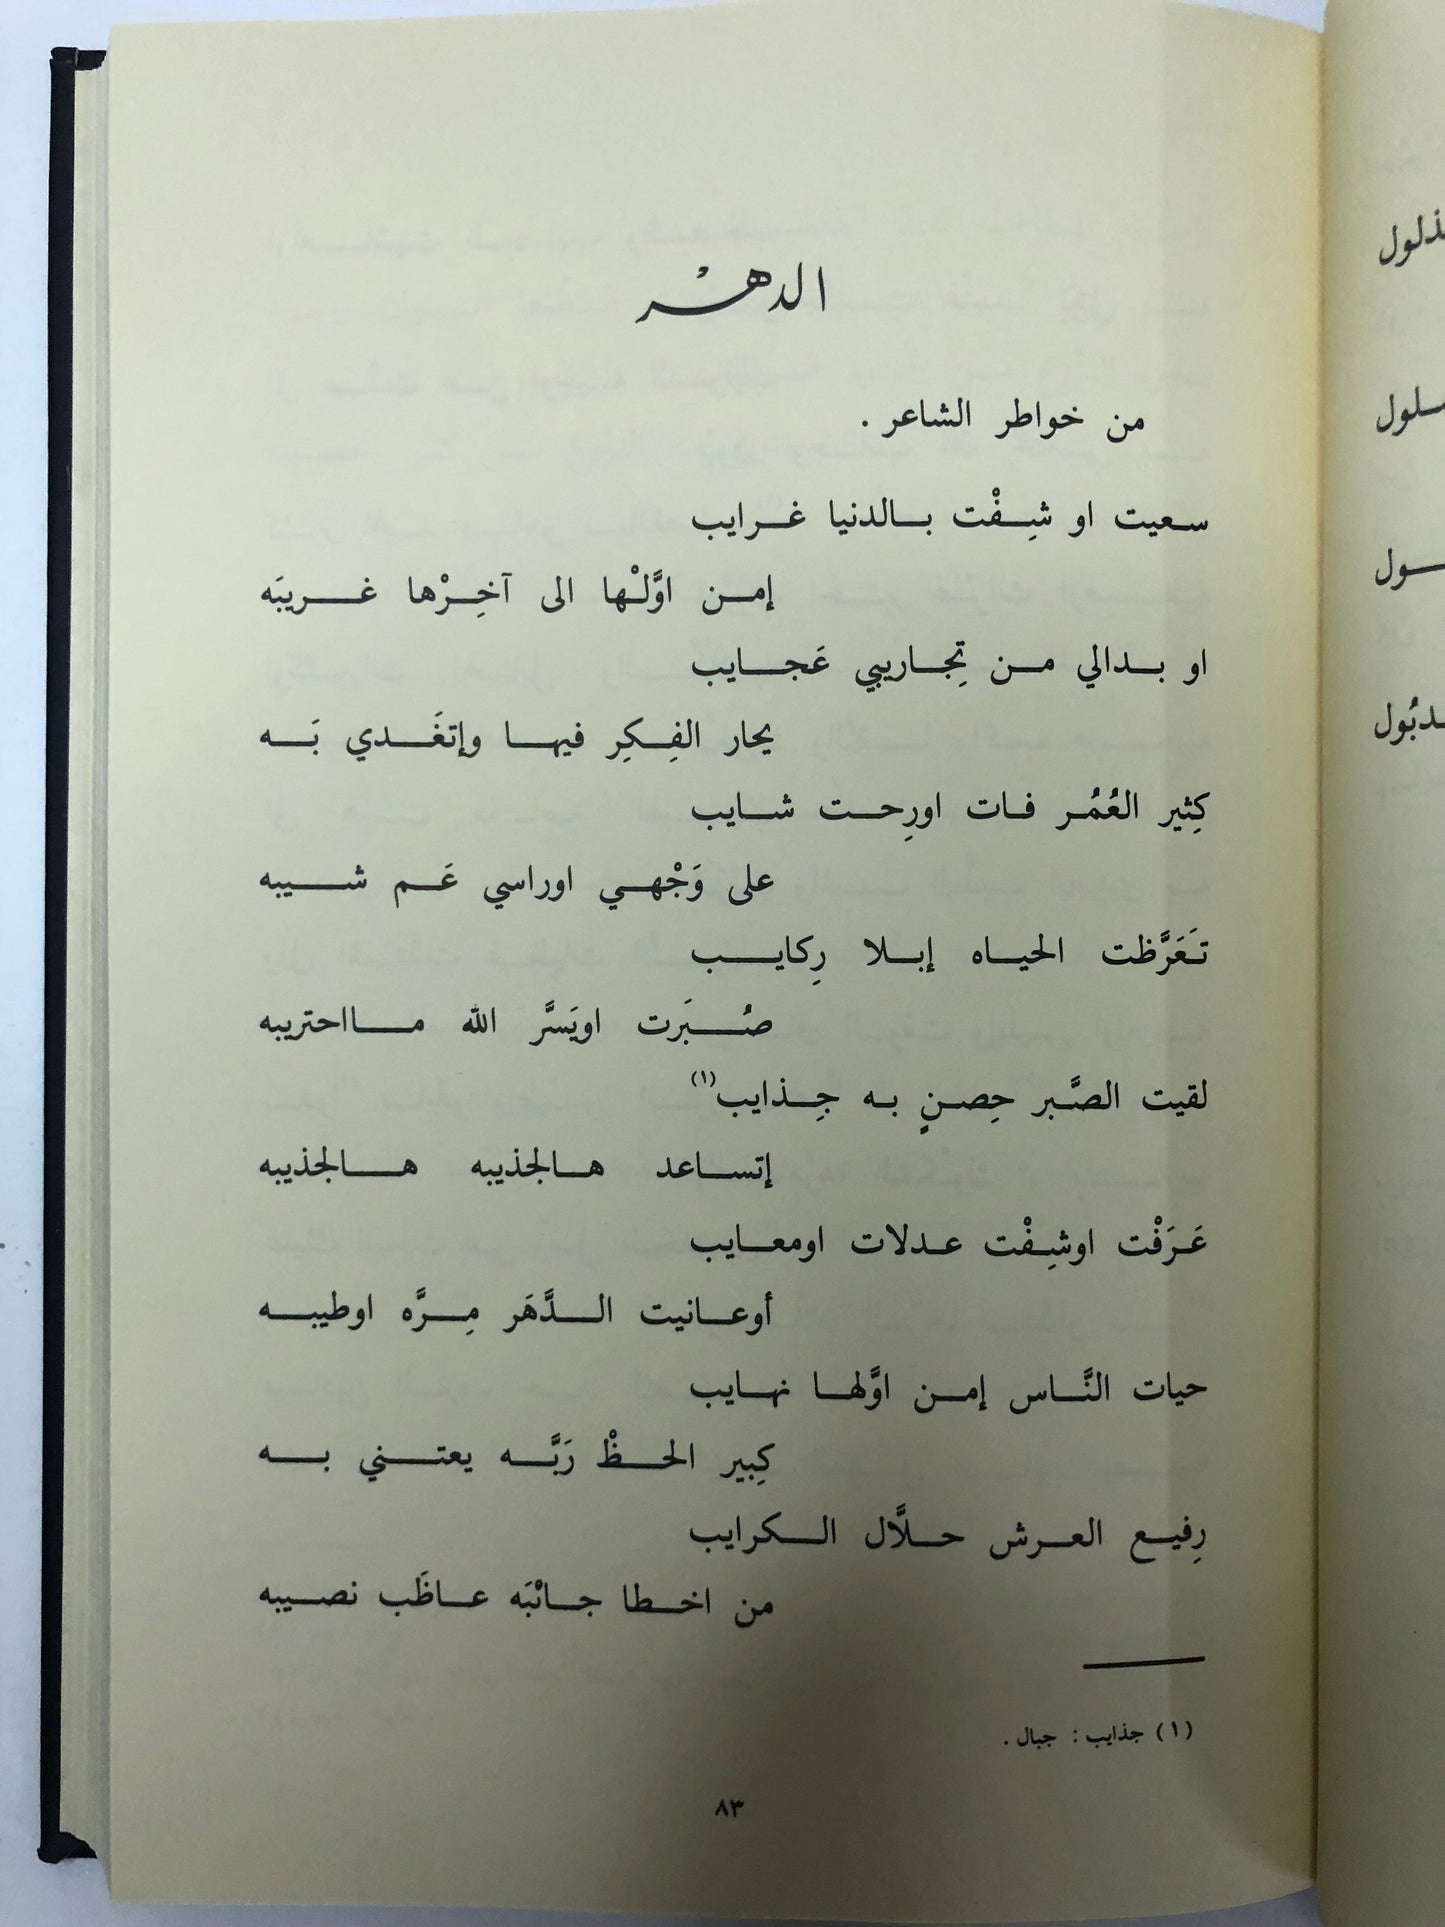 الدهْر
من خواطر الشاعر .
سعيت او شِفْت بالدنيا غرايب
إمن اوَّلْها الى آخِرْها غريبَه
او بدالي من تِجاريبي عَجايب
يحار الفِكِر فيها وإتغَدي بَه
كِثير العُمُر فات اورِحت شايب
على وَجْهي اوراسي عَم شيبه
تَعَرَّظت الحياه إبلا رِكايب
صُبَرت اويَسَّر الله مااحتريبه
لقيت الصَّبر حِصنٍ به جِذايب(١)
إتساعد هالجذيبه هالجذيبه
عَرَفْت اوشِفْت عدلات اومعايب
أوعانيت الدَّهَر مِرَّه اوطيبه
حيات النَّاس إمن اوَّلها نهايب
كِبير الحظْ رَبَّه يعتني به
رِفيع العرش حلَّال الكرايب
من اخطا جانْبَه عاظَب نصيبه
(١) جذايب : جبال .
٨٣
ول